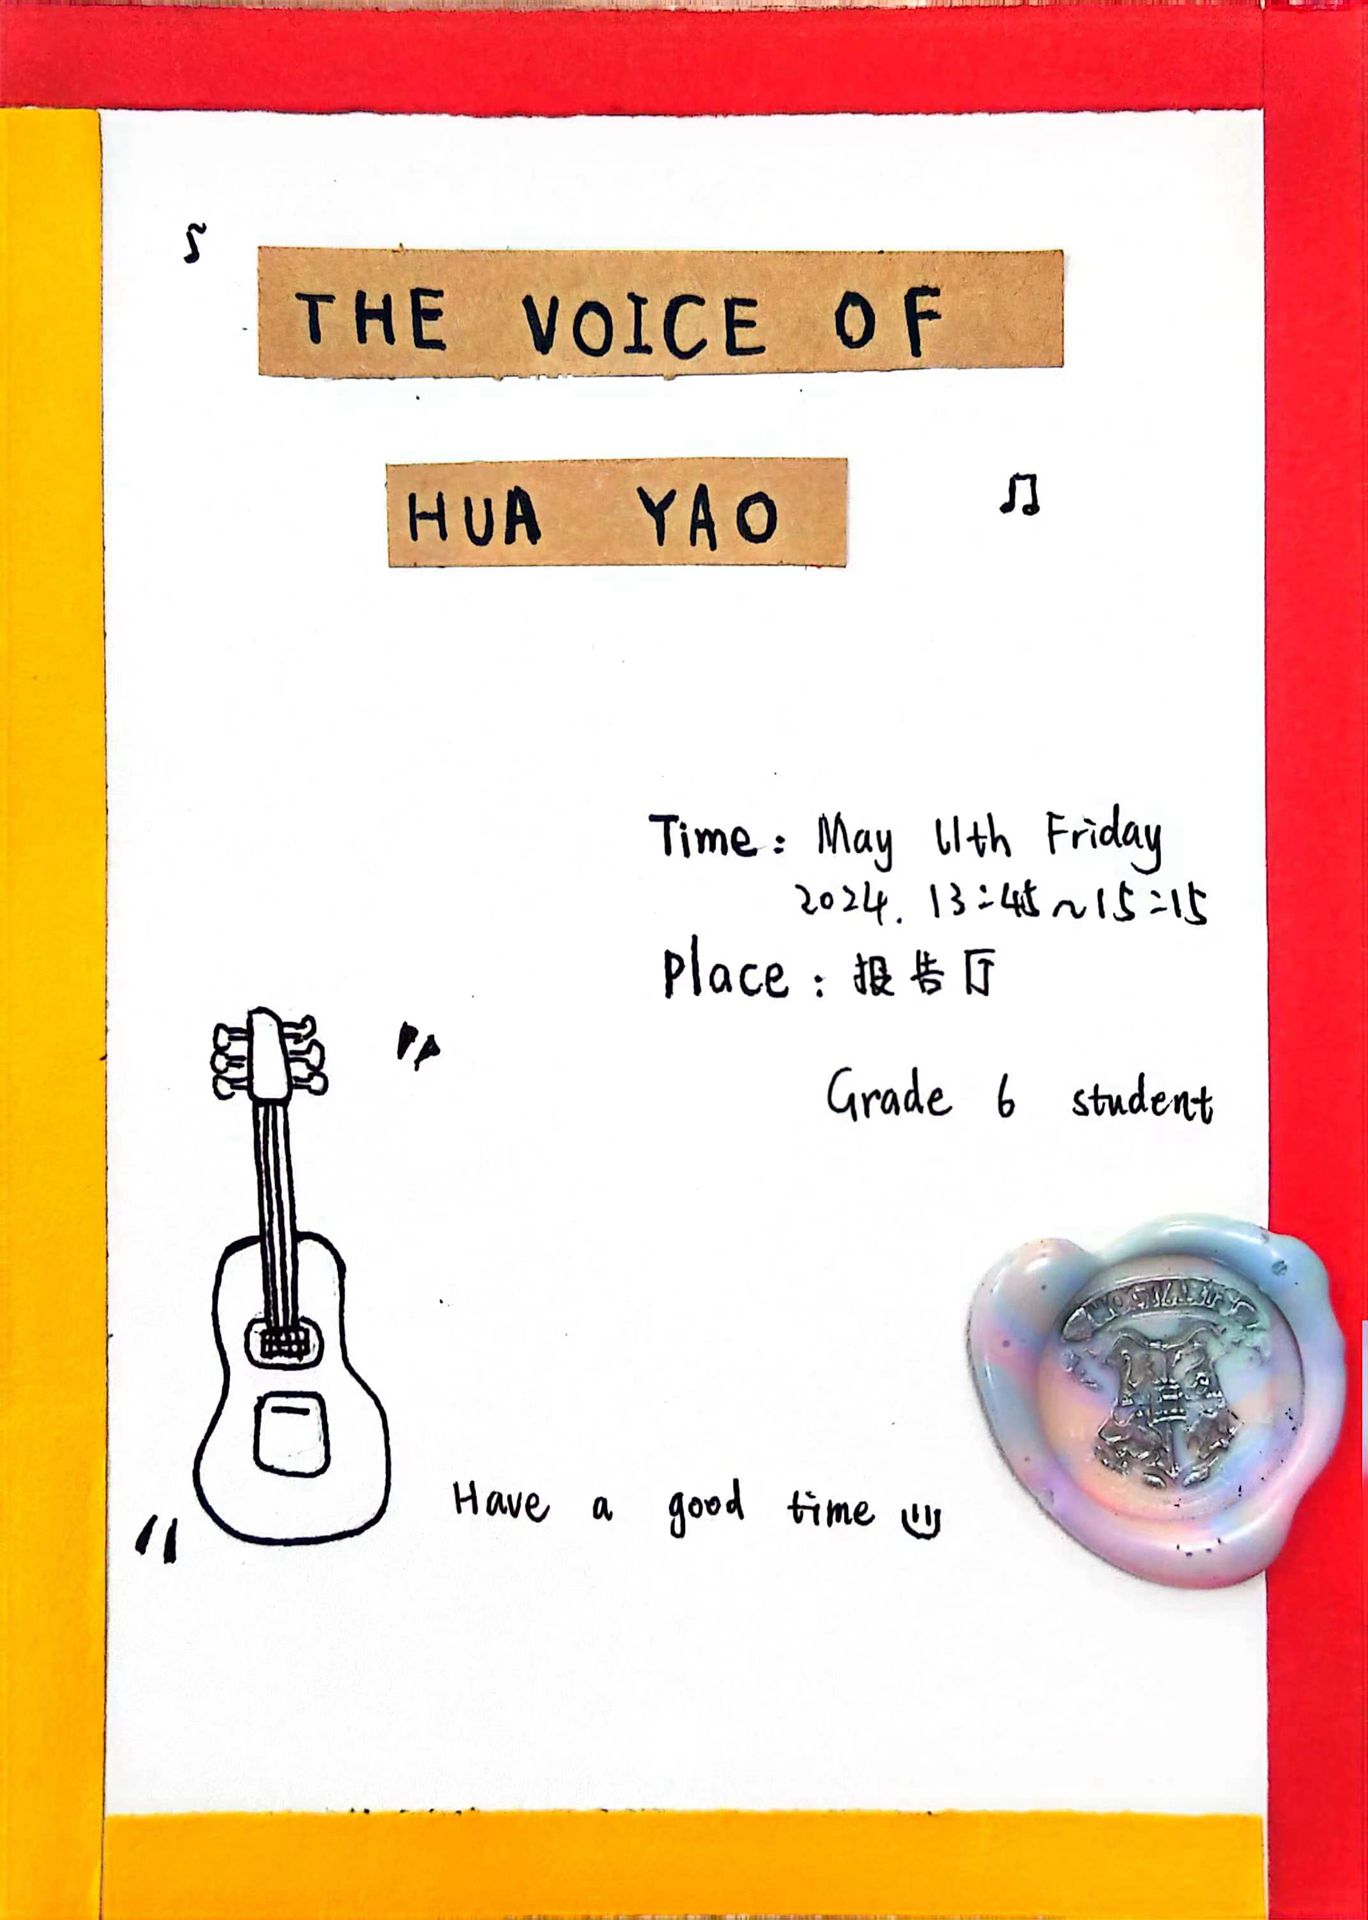 THE VOICE OF
HUA YAO
Time: May 11th Friday
2024. 13:45~15:15
Place: 报告厅
Grade 6 student
Have a good time